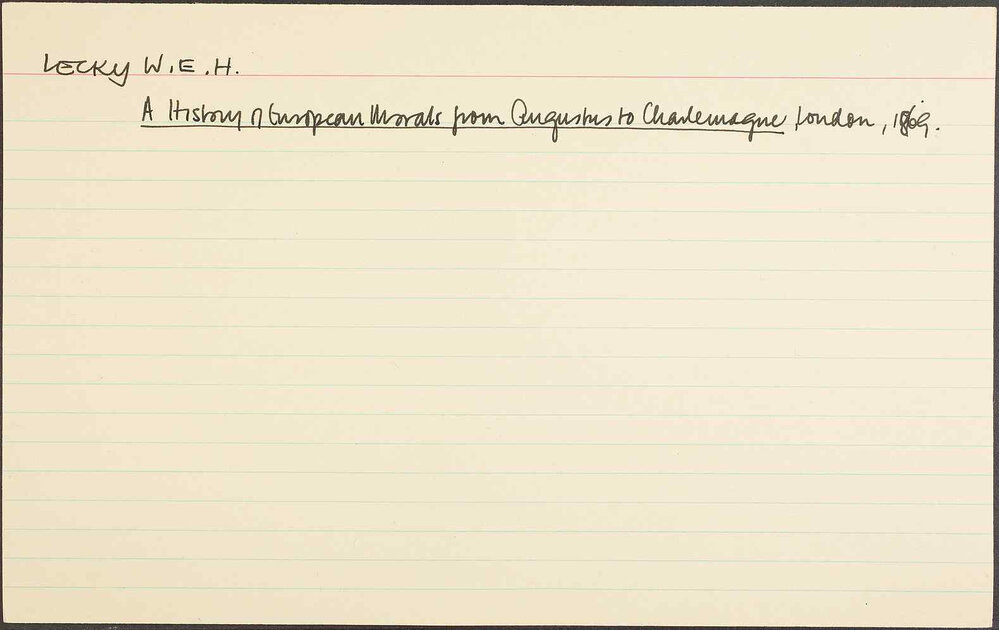 LECKY W.E.H.
A History of European Morals from Augustus to Charlemagne London, 1869.